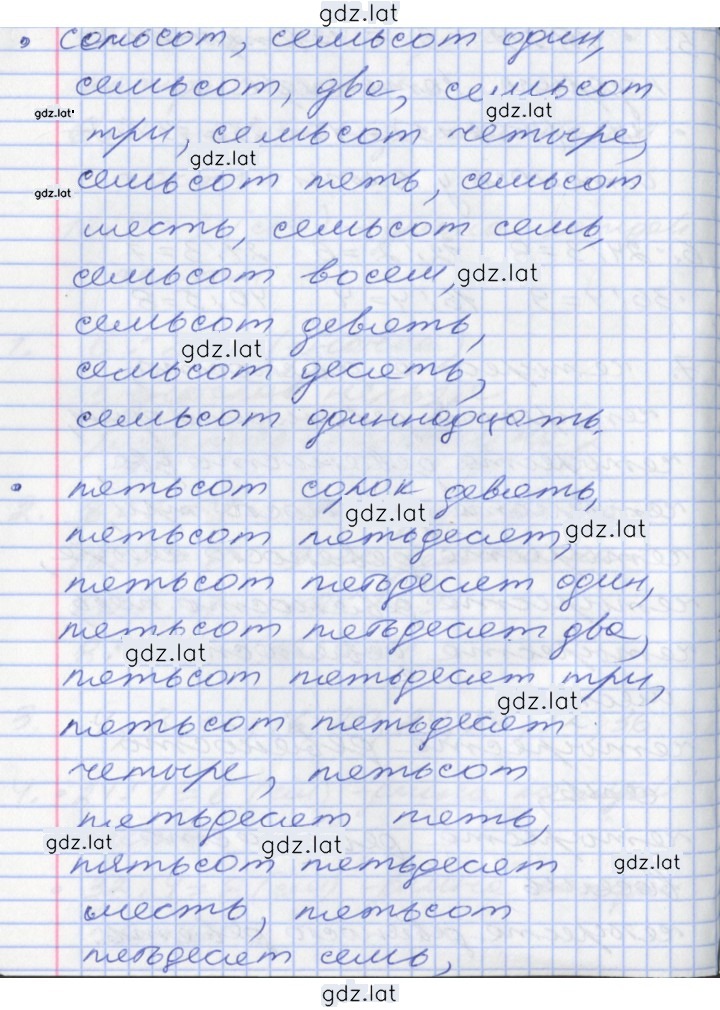 gdz.lat
• семьсот, семьсот один,
семьсот, два, семьсот
gdz.lat gdz.lat
три, семьсот четыре,
gdz.lat
семьсот пять, семьсот
gdz.lat
шесть, семьсот семь,
семьсот восем, gdz.lat
семьсот девять,
gdz.lat
семьсот десять,
семьсот одиннадцать.
• пятьсот сорок девять,
gdz.lat
пятьсот пятьдесят, gdz.lat
пятьсот пятьдесят один,
пятьсот пятьдесят два,
gdz.lat
пятьсот пятьдесят три,
gdz.lat
пятьсот пятьдесят
четыре, пятьсот
пятьдесят пять,
gdz.lat gdz.lat
пятьсот пятьдесят gdz.lat
шесть, пятьсот
пятьдесят семь,
gdz.lat